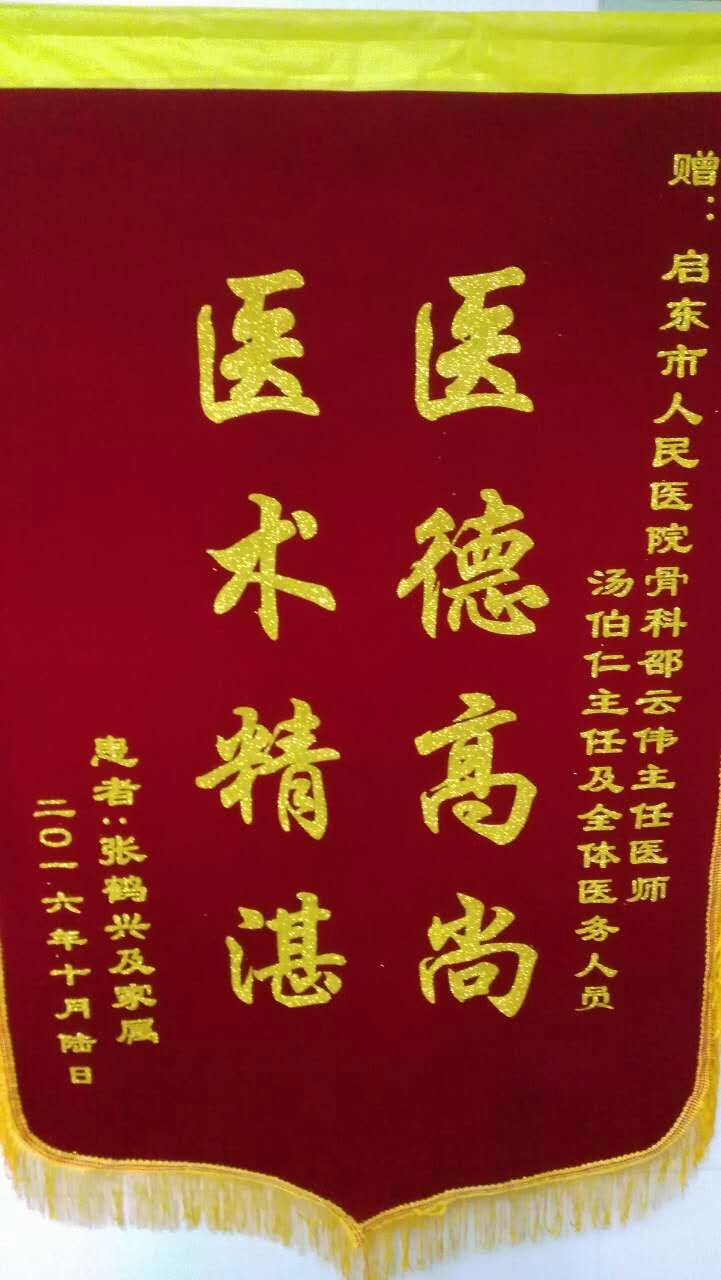 赠：启东市人民医院骨科邵云伟主任医师
汤伯仁主任及全体医务人员
医德高尚
医术精湛
患者：张鹤兴及家属
二〇一六年十月陆日